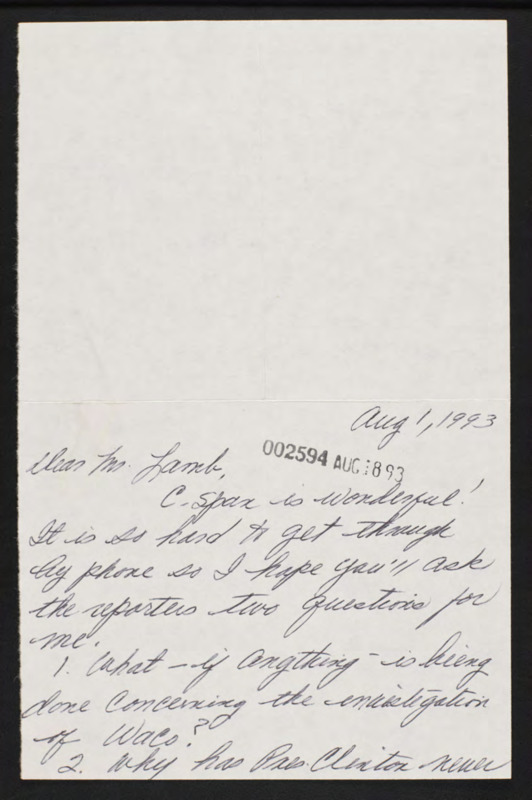 Aug 1, 1993
Dear Mr. Lamb,
002594 AUG 8 93
C-Span is wonderful!
It is so hard to get through
by phone so I hope you'll ask
the reporters two questions for
me.
1. What - if anything - is being
done concerning the investigation
of Waco?
2. Why has Pres. Clinton never